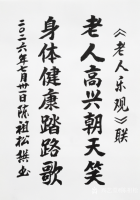 《老人乐观》联
老人高兴朝天笑
身体健康踏路歌
二〇二六年七月卅一日陈祖松撰书